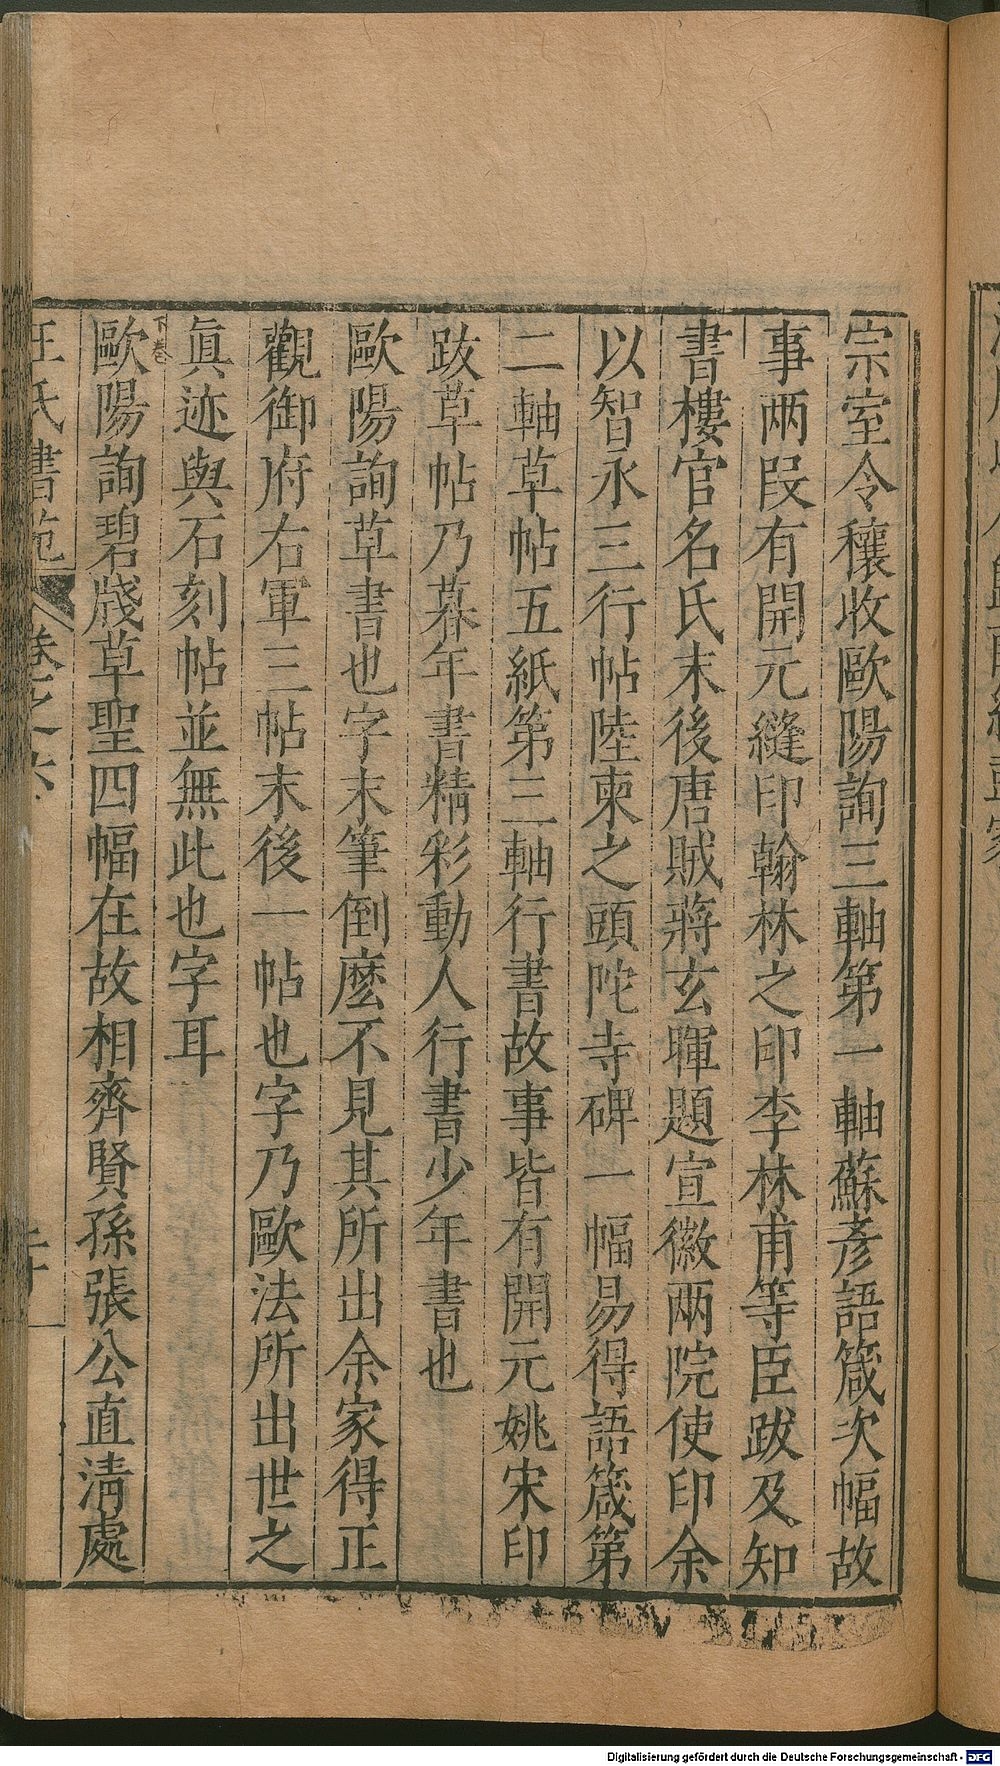 宗室令穰收歐陽詢三軸第一軸蘇彥語箴次幅故
事兩段有開元縫印翰林之印李林甫等臣跋及知
書樓官名氏末後唐賊蔣玄暉題宣徽兩院使印余
以智永三行帖陸柬之頭陀寺碑一幅易得語箴第
二軸草帖五紙第三軸行書故事皆有開元姚宋印
跋草帖乃暮年書精彩動人行書少年書也
歐陽詢草書也字末筆倒麽不見其所出余家得正
觀御府右軍三帖末後一帖也字乃歐法所出世之
眞迹與石刻帖並無此也字耳
下卷
歐陽詢碧牋草聖四幅在故相齊賢孫張公直清處
汪氏書苑 卷之六
Digitalisierung gefördert durch die Deutsche Forschungsgemeinschaft - DFG